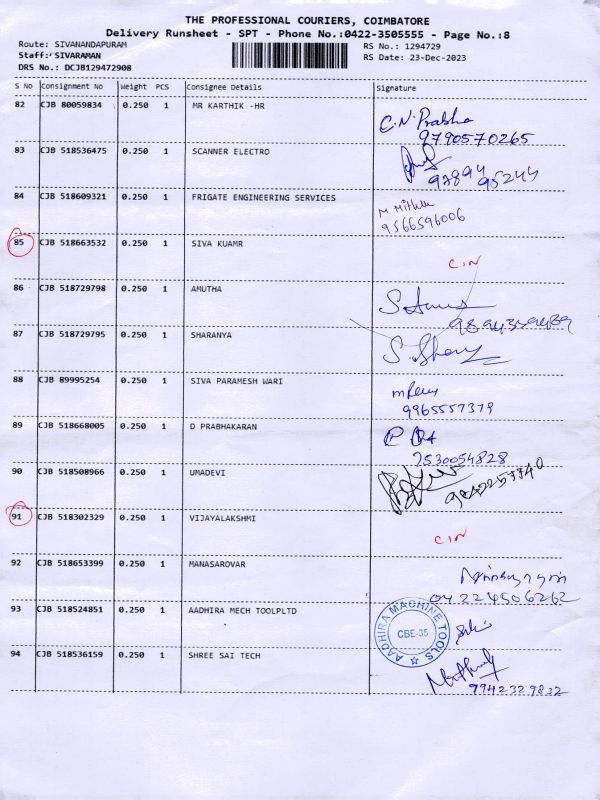 THE PROFESSIONAL COURIERS, COIMBATORE
Delivery Runsheet - SPT - Phone No.:0422-3505555 - Page No.:8
Route: SIVANANDAPURAM RS No.: 1294729
Staff: SIVARAMAN RS Date: 23-Dec-2023
DRS No.: DCJB129472908
S No Consignment No Weight PCS Consignee Details Signature
82 CJB 80059834 0.250 1 MR KARTHIK -HR C.N.Prabha
9790570265
83 CJB 518536475 0.250 1 SCANNER ELECTRO
97894 95244
84 CJB 518609321 0.250 1 FRIGATE ENGINEERING SERVICES
9566596006
85 CJB 518663532 0.250 1 SIVA KUAMR
CIN
86 CJB 518729798 0.250 1 AMUTHA
9894359489
87 CJB 518729795 0.250 1 SHARANYA
88 CJB 89995254 0.250 1 SIVA PARAMESH WARI
9965557379
89 CJB 518668005 0.250 1 D PRABHAKARAN
7530054828
90 CJB 518508966 0.250 1 UMADEVI
9842253340
91 CJB 518302329 0.250 1 VIJAYALAKSHMI
CIN
92 CJB 518653399 0.250 1 MANASAROVAR
04224506262
93 CJB 518524851 0.250 1 AADHIRA MECH TOOLPLTD
AADHIRA MACHINE TOOLS
CBE-35
94 CJB 518536159 0.250 1 SHREE SAI TECH
9942329832